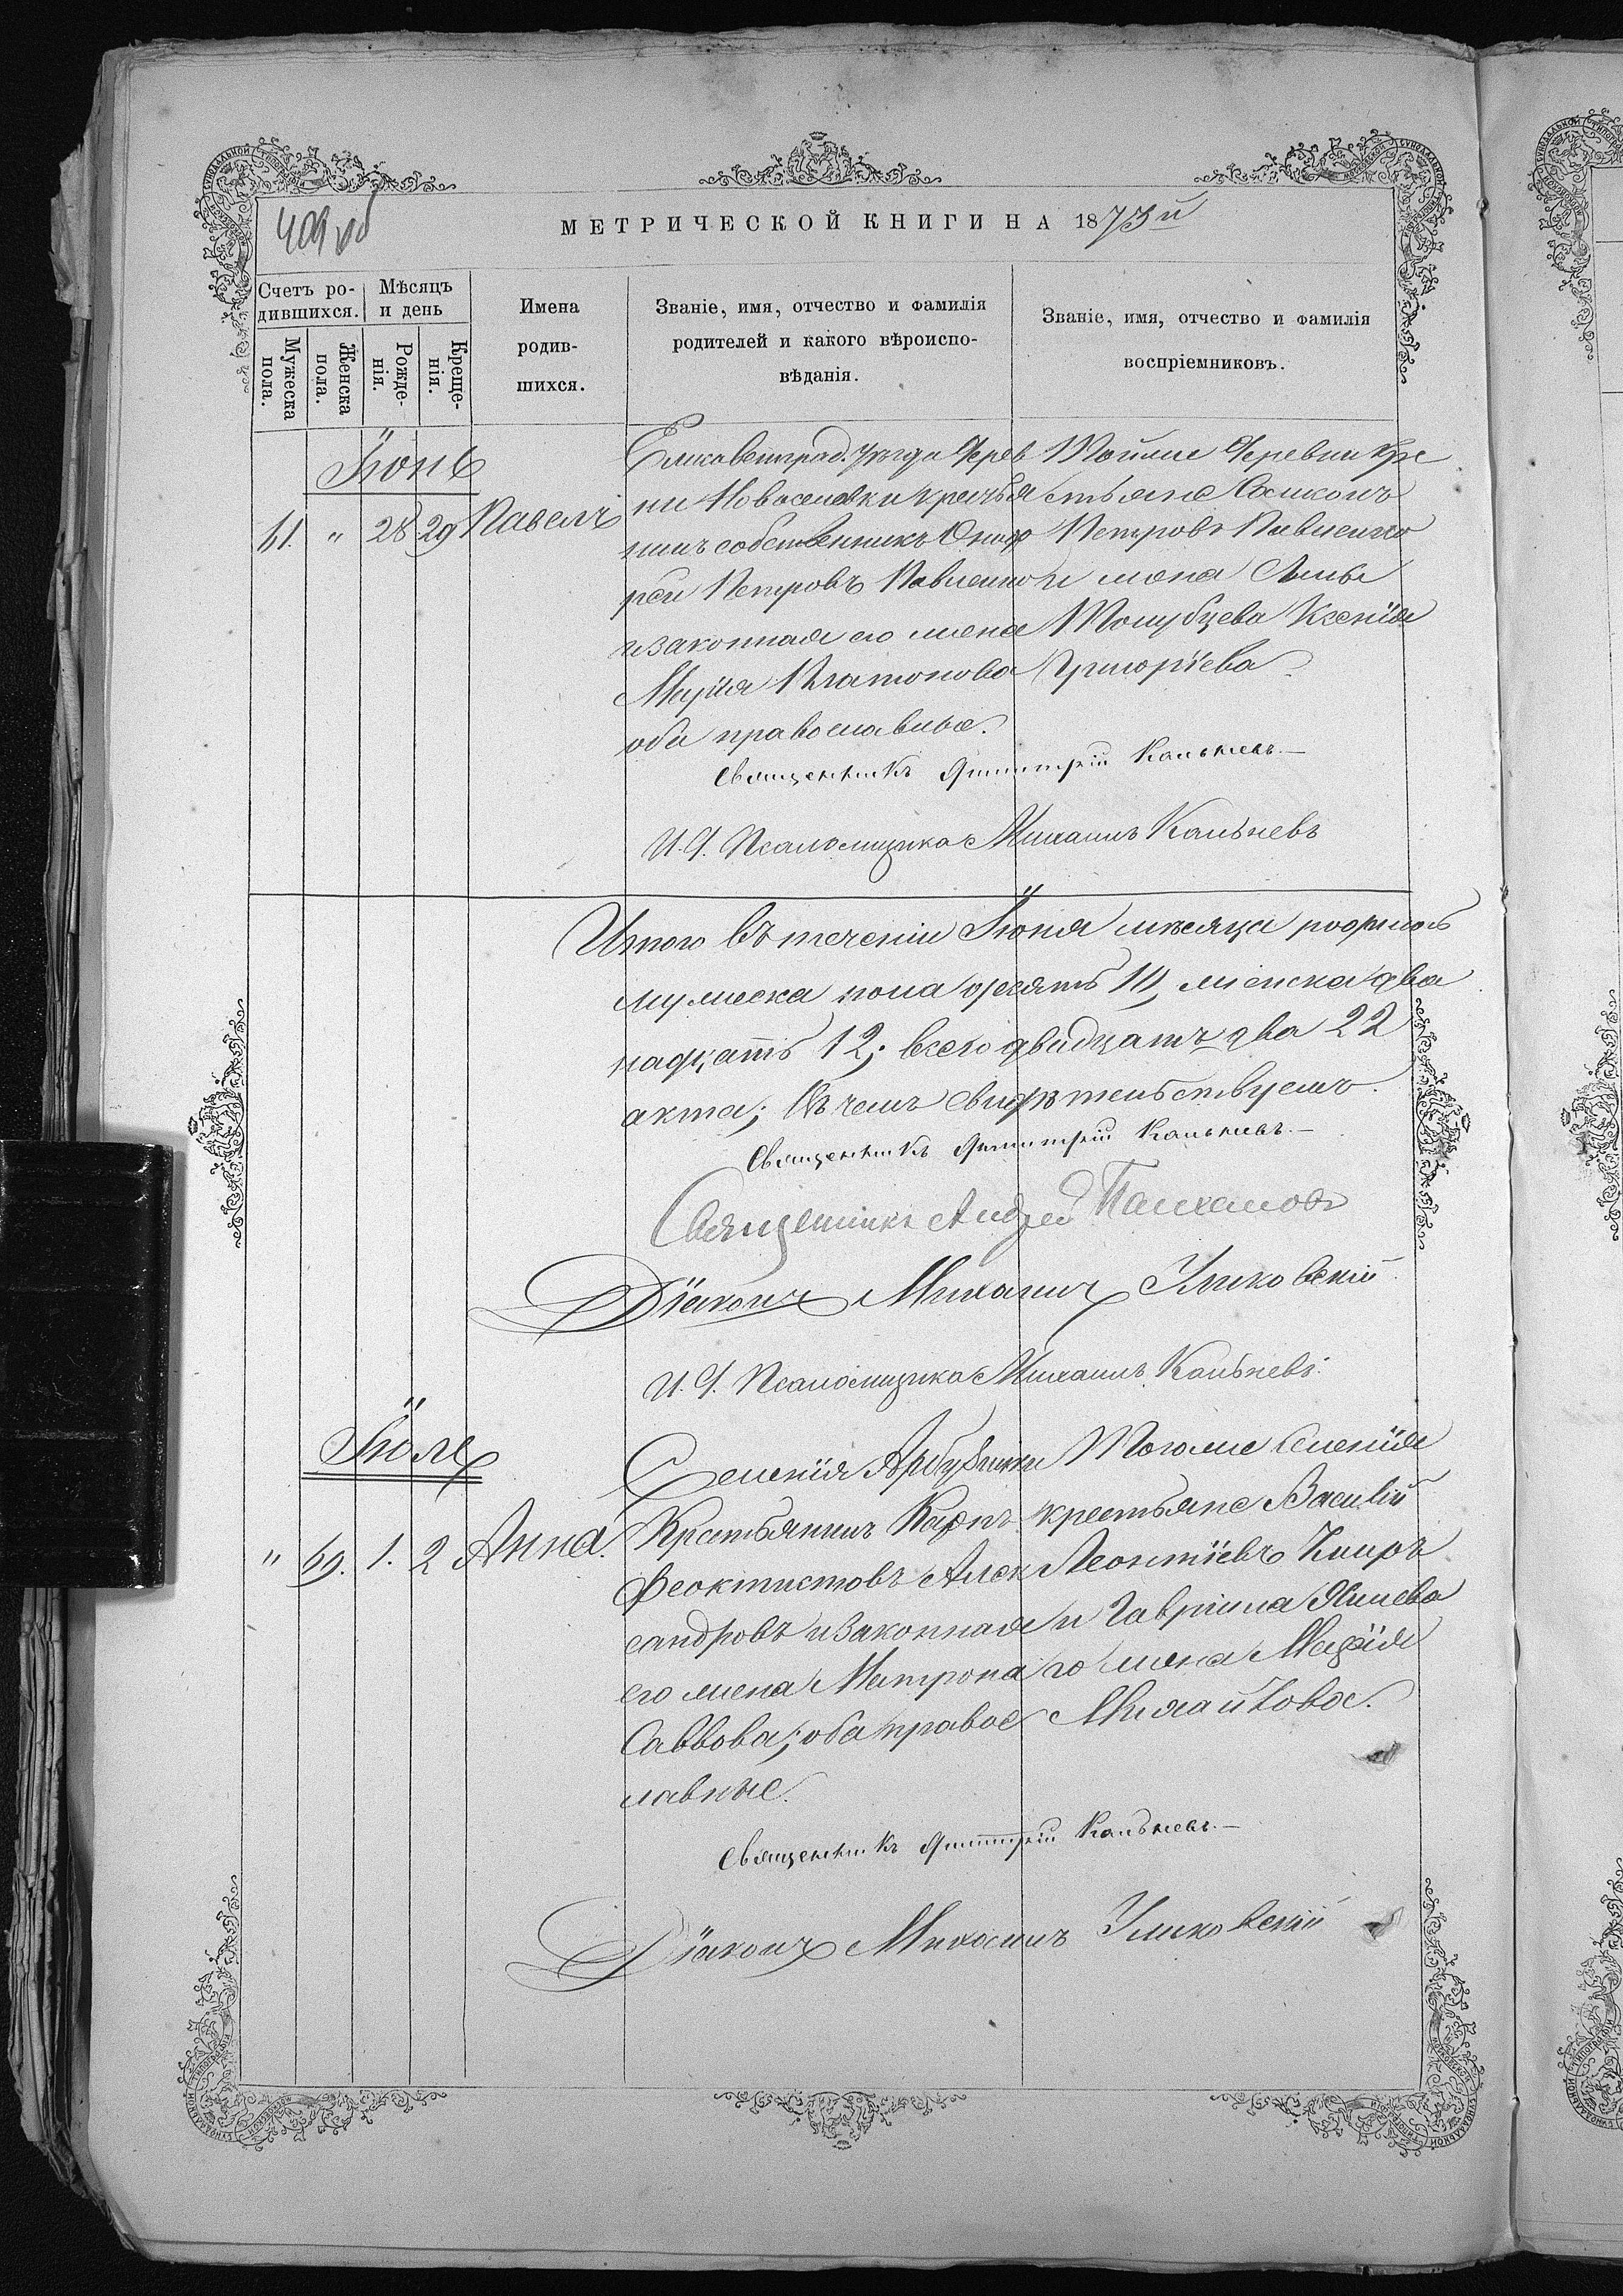 409 об
МЕТРИЧЕСКОЙ КНИГИ НА 1873й
Счетъ ро-
дившихся.
Мѣсяцъ
и день
Мужеска
пола.
Женска
пола.
Рожде-
нія.
Креще-
нія.
Имена
родив-
шихся.
Званіе, имя, отчество и фамилія
родителей и какого вѣроиспо-
вѣданія.
Званіе, имя, отчество и фамилія
воспріемниковъ.
Іюнь
61. " 28 29 Павелъ
Елисаветград. уѣзда дерев
ни Новоселовки крестья
нинъ собственникъ Онуф
рей Петровъ Павленко
и законная его жена
Марія Платонова
оба православные.
Тойже деревни кре
стьяне
Петровъ Павленко
и жена
Голубцева Ксенія
Григоріева.
Священникъ Димитрій Кальневъ.
И. Д. Псаломщика Михаилъ Кальневъ
Итого въ теченіи Іюня мѣсяца родилось
мужеска пола десять 10, женска два
надцать 12; всего двадцать два 22
акта; въ чемъ свидѣтельствуемъ.
Священникъ Димитрій Кальневъ.
Священникъ Андрей
Діаконъ Михаилъ Уликовскій
И. Д. Псаломщика Михаилъ Кальневъ.
Іюль
" 69. 1. 2 Анна.
Селенія Арбузинки
Крестьянинъ Карпъ
Феоктистовъ Алек
сандровъ и законная
его жена Матрона
Саввова; оба правос
лавные.
Тогоже селенія
крестьяне Василій
Леонтіевъ
и Гавріила
го жена Марія
Михайлова.
Священникъ Димитрій Кальневъ.
Діаконъ Михаилъ Уликовскій